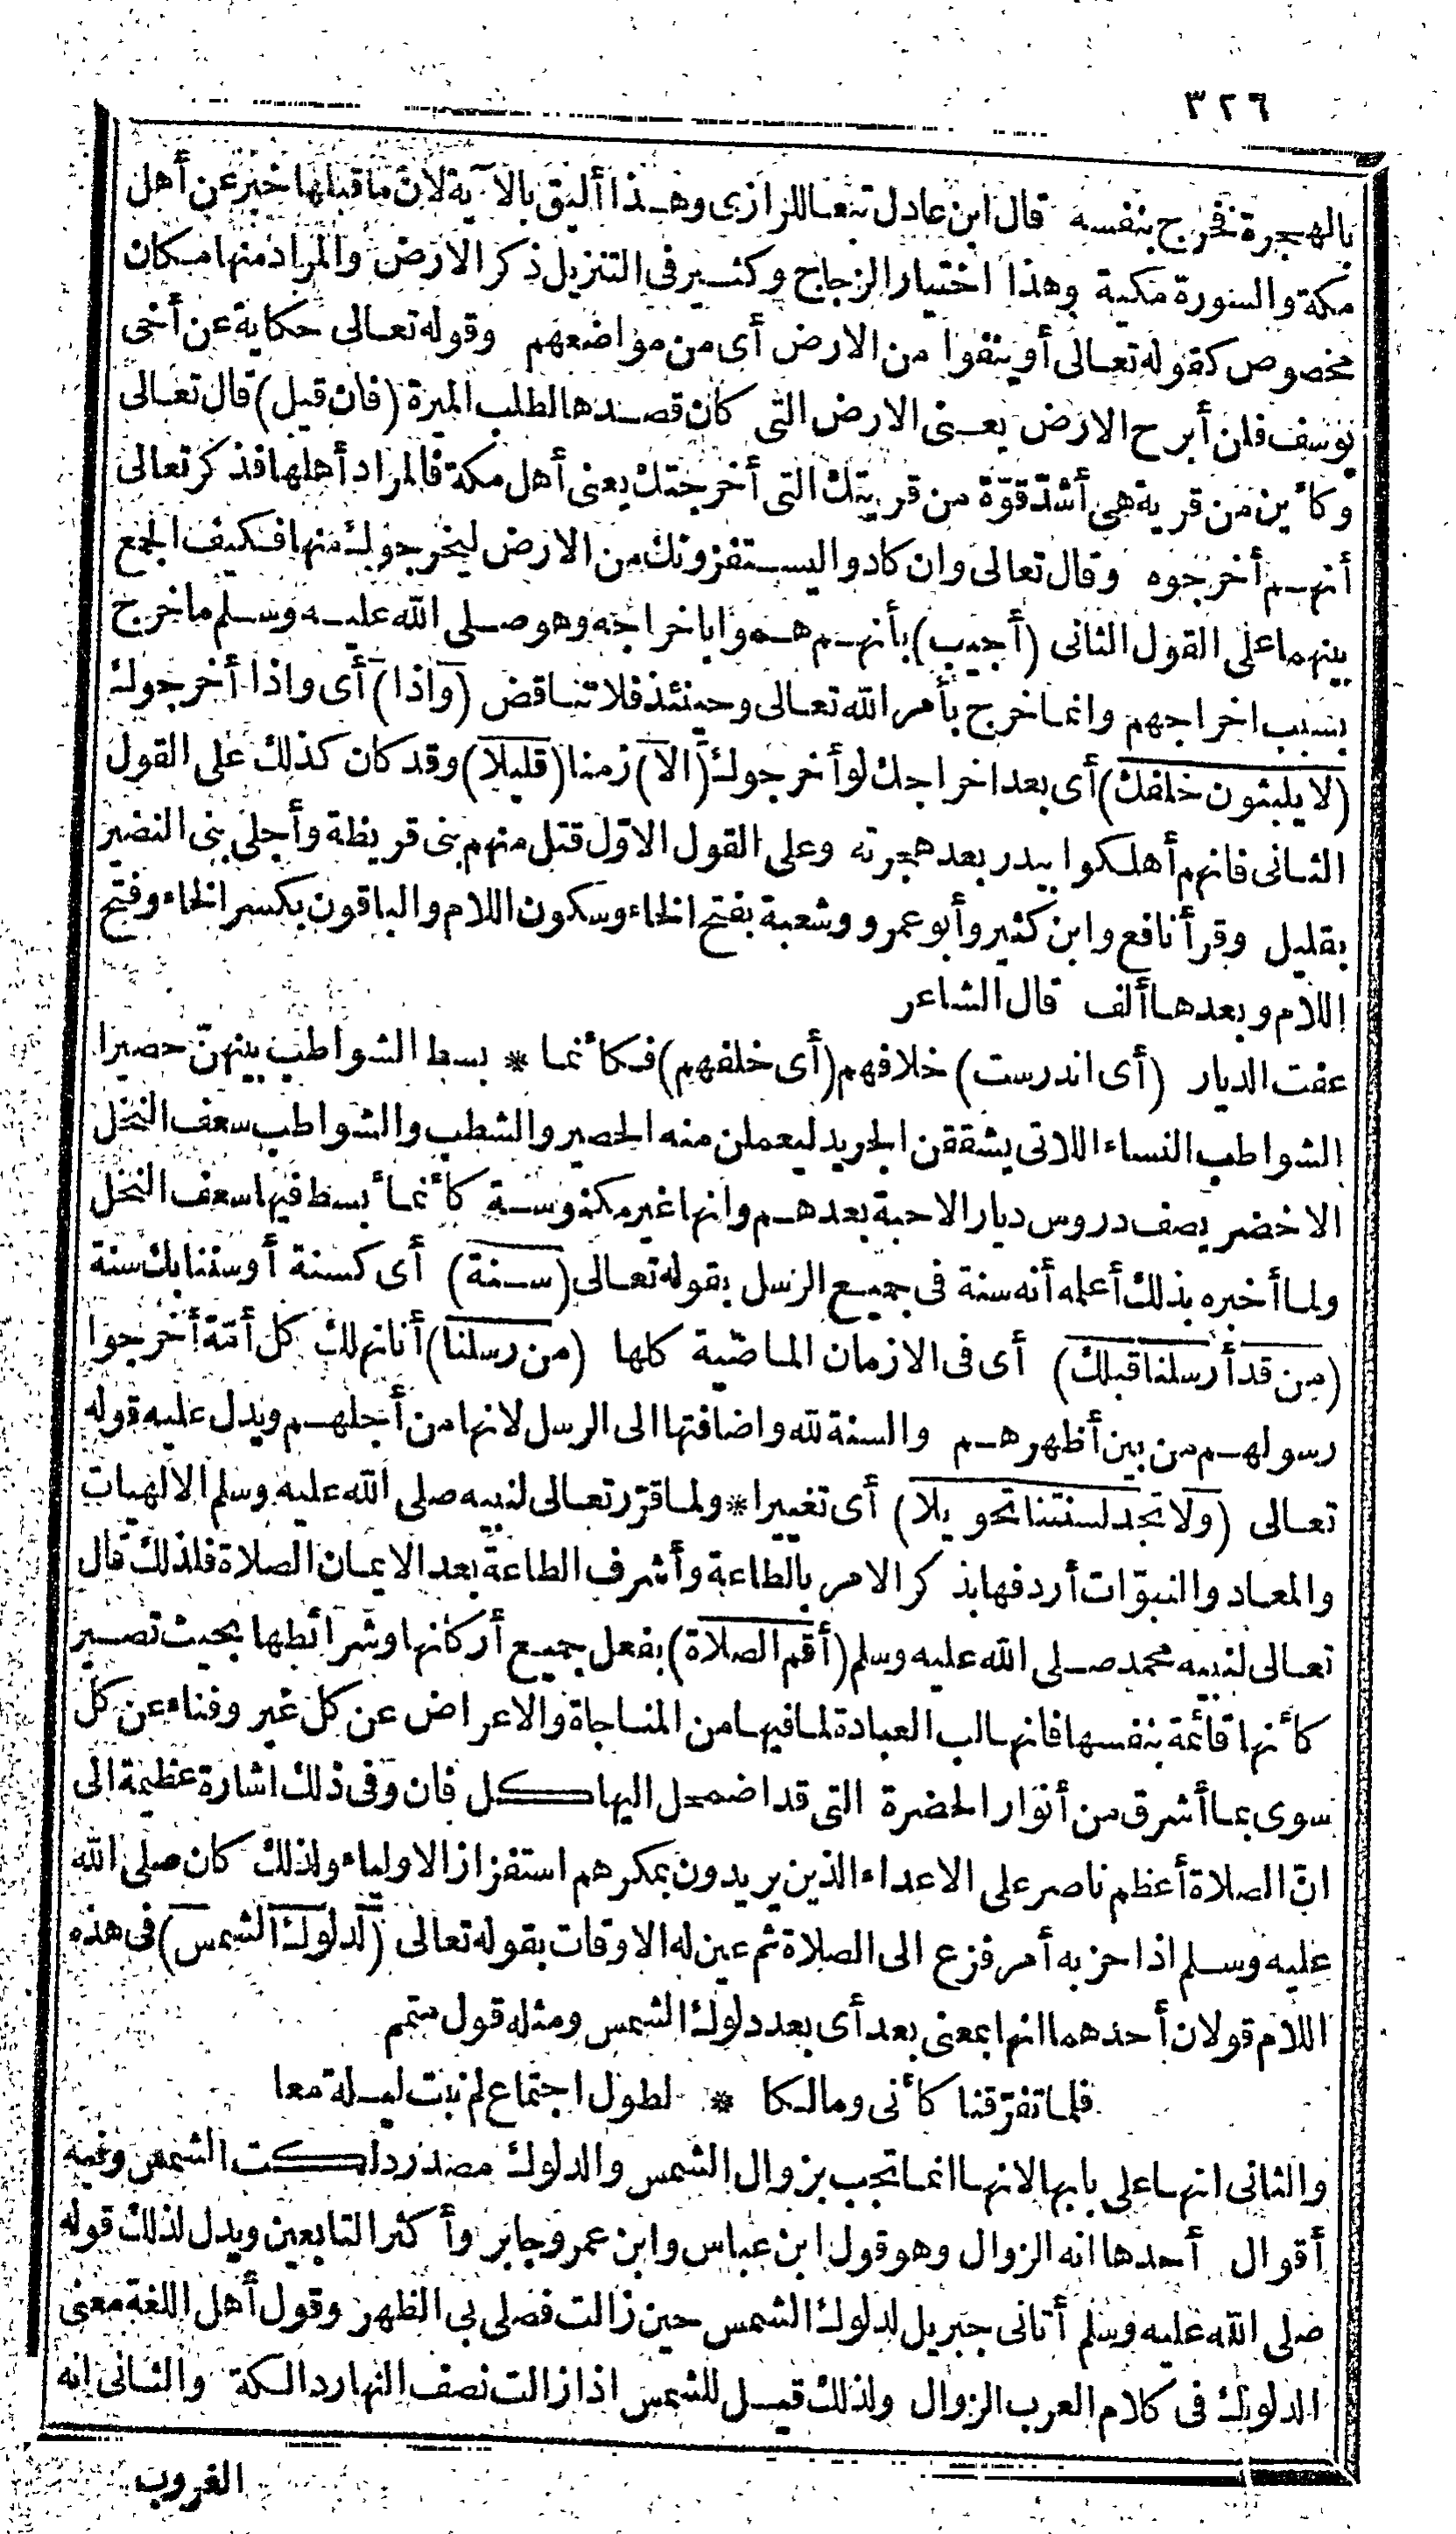 ٣٢٦
بالهجرة فخرج بنفسه قال ابن عادل تبعا للرازى وهذا أليق بالآية لان ما قبلها خبر عن أهل
مكة والسورة مكية وهذا اختيار الزجاج وكثير فى التنزيل ذكر الارض والمراد منها مكان
مخصوص كقوله تعالى أو ينفوا من الارض أى من مواضعهم وقوله تعالى حكاية عن أخى
يوسف فلن أبرح الارض يعنى الارض التى كان قصدها لطلب الميرة (فان قيل) قال تعالى
وكأين من قرية هى أشدّ قوّة من قريتك التى أخرجتك يعنى أهل مكة فالمراد أهلها فذكر تعالى
أنهم أخرجوه وقال تعالى وان كادوا ليستفزونك من الارض ليخرجوك منها فكيف الجمع
بينهما على القول الثانى (أجيب) بأنهم هموا باخراجه وهو صلى الله عليه وسلم ما خرج
بسبب اخراجهم وانما خرج بأمر الله تعالى وحينئذ فلا تناقض (واذا) أى واذا أخرجوك
(لا يلبثون خلفك) أى بعد اخراجك لو أخرجوك (الا) زمنا (قليلا) وقد كان كذلك على القول
الثانى فانهم أهلكوا ببدر بعد هجرته وعلى القول الاوّل قتل منهم بنى قريظة وأجلى بنى النضير
بقليل وقرأ نافع وابن كثير وأبو عمرو وشعبة بفتح الخاء وسكون اللام والباقون بكسر الخاء وفتح
اللام وبعدها ألف قال الشاعر
عفت الديار (أى اندرست) خلافهم (أى خلفهم) فكأنما * بسط الشواطب بينهنّ حصيرا
الشواطب النساء اللاتى يشققن الجريد ليعملن منه الحصير والشطب والشواطب سعف النخل
الاخضر يصف دروس ديار الاحبة بعدهم وانها غير مكنوسة كأنما بسط فيها سعف النخل
ولما أخبره بذلك أعلمه أنه سنة فى جميع الرسل بقوله تعالى (سنة) أى كسنة أو سننا بك سنة
(من قد أرسلنا قبلك) أى فى الازمان الماضية كلها (من رسلنا) أنا نهلك كل أمّة أخرجوا
رسولهم من بين أظهرهم والسنة لله واضافتها الى الرسل لانها من أجلهم ويدل عليه قوله
تعالى (ولا تجد لسنتنا تحويلا) أى تغييرا * ولما قرّر تعالى لنبيه صلى الله عليه وسلم الالهيات
والمعاد والنبوّات أردفها بذكر الامر بالطاعة وأشرف الطاعة بعد الايمان الصلاة فلذلك قال
تعالى لنبيه محمد صلى الله عليه وسلم (أقم الصلاة) بفعل جميع أركانها وشرائطها بحيث تصير
كأنها قائمة بنفسها فانها لب العبادة لما فيها من المناجاة والاعراض عن كل غير وفناء عن كل
سوى بما أشرق من أنوار الحضرة التى قد اضمحل اليها كل فان وفى ذلك اشارة عظيمة الى
انّ الصلاة أعظم ناصر على الاعداء الذين يريدون بمكرهم استفزاز الاولياء ولذلك كان صلى الله
عليه وسلم اذا حز به أمر فزع الى الصلاة ثم عين له الاوقات بقوله تعالى (لدلوك الشمس) فى هذه
اللام قولان أحدهما انها بمعنى بعد أى بعد دلوك الشمس ومثله قول متمم
فلما تفرّقنا كأنى ومالكا * لطول اجتماع لم نبت ليلة معا
والثانى انها على بابها لانها انما تجب بزوال الشمس والدلوك مصدر دلكت الشمس وفيه
أقوال أحدها انه الزوال وهو قول ابن عباس وابن عمر وجابر وأكثر التابعين ويدل لذلك قوله
صلى الله عليه وسلم أتانى جبريل لدلوك الشمس حين زالت فصلى بى الظهر وقول أهل اللغة معنى
الدلوك فى كلام العرب الزوال ولذلك قيل للشمس اذا زالت نصف النهار دالكة والثانى انه
الغروب